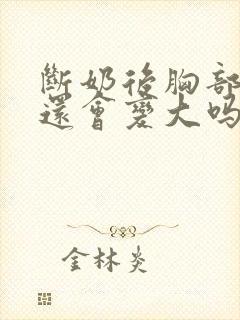 斷奶後胸部
還會變大嗎
金林炎